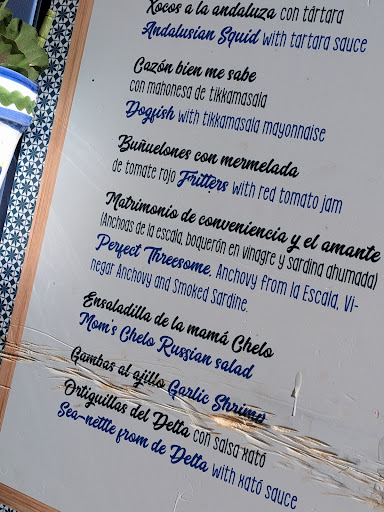 Xocos a la andaluza con tártara
Andalusian Squid with tartara sauce
Cazón bien me sabe
con mahonesa de tikkamasala
Dogfish with tikkamasala mayonnaise
Buñuelones con mermelada
de tomate rojo Fritters with red tomato jam
Matrimonio de conveniencia y el amante
(Anchoas de la escala, boquerón en vinagre y sardina ahumada)
Perfect Threesome, Anchovy from la Escala, Vi-
negar Anchovy and Smoked Sardine.
Ensaladilla de la mamá Chelo
Mom's Chelo Russian salad
Gambas al ajillo Garlic Shrimp
Ortiguillas del Delta con salsa xató
Sea-nettle from de Delta with xató sauce